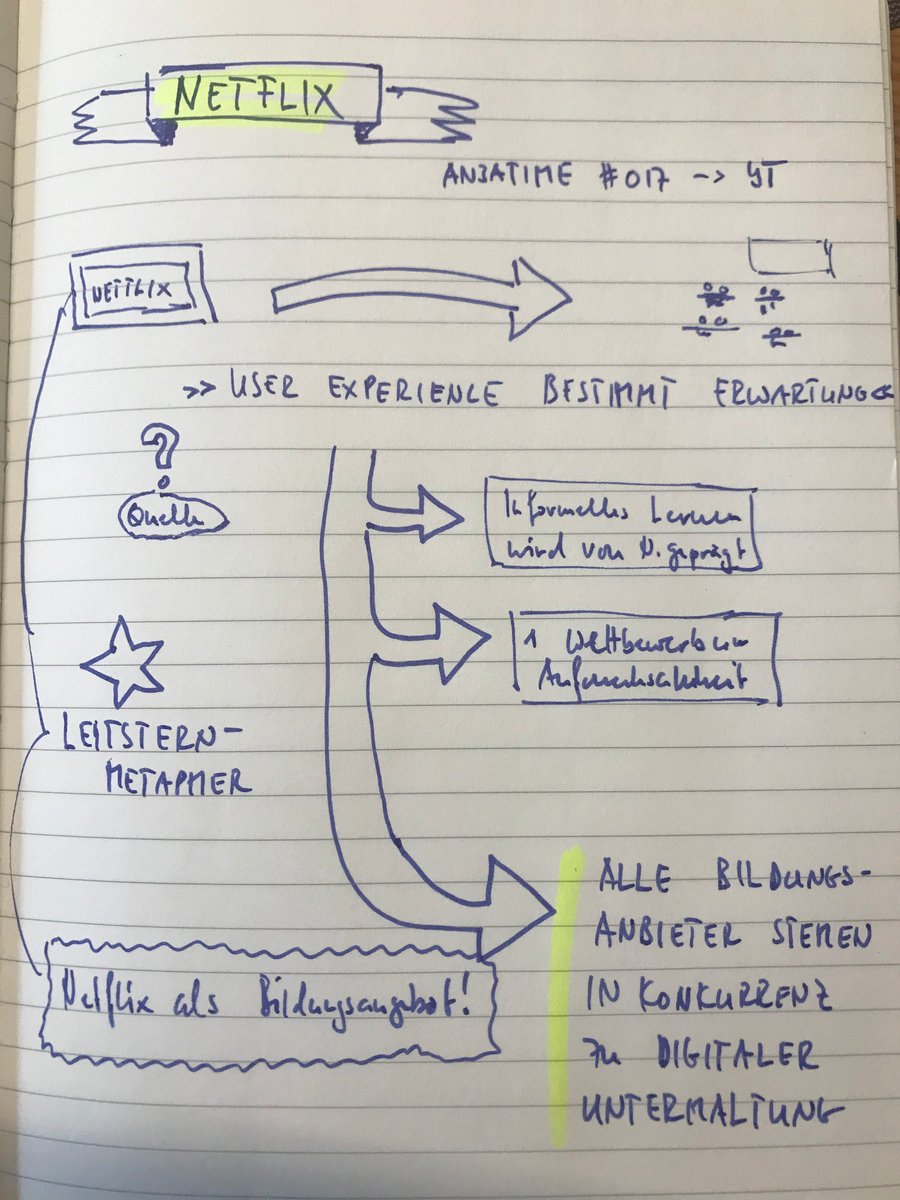 NETFLIX
ANJATIME #017 --> YT
NETFLIX
>> USER EXPERIENCE BESTIMMT ERWARTUNG <<
?
Quelle
Informelles Lernen
wird von N. geprägt
1 Wettbewerb um
Aufmerksamkeit
LEITSTERN-
METAPHER
ALLE BILDUNGS-
ANBIETER STEHEN
IN KONKURRENZ
ZU DIGITALER
UNTERHALTUNG
Netflix als Bildungsangebot!